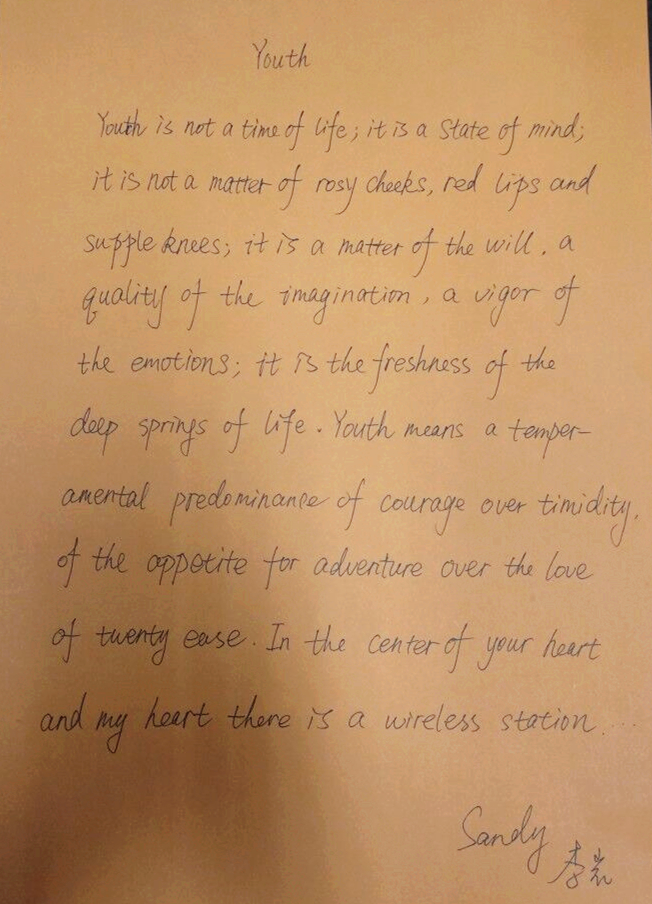 Youth
Youth is not a time of life; it is a state of mind;
it is not a matter of rosy cheeks, red lips and
supple knees; it is a matter of the will, a
quality of the imagination, a vigor of
the emotions; it is the freshness of the
deep springs of life. Youth means a temper-
amental predominance of courage over timidity,
of the appetite for adventure over the love
of twenty ease. In the center of your heart
and my heart there is a wireless station....
Sandy
李岩